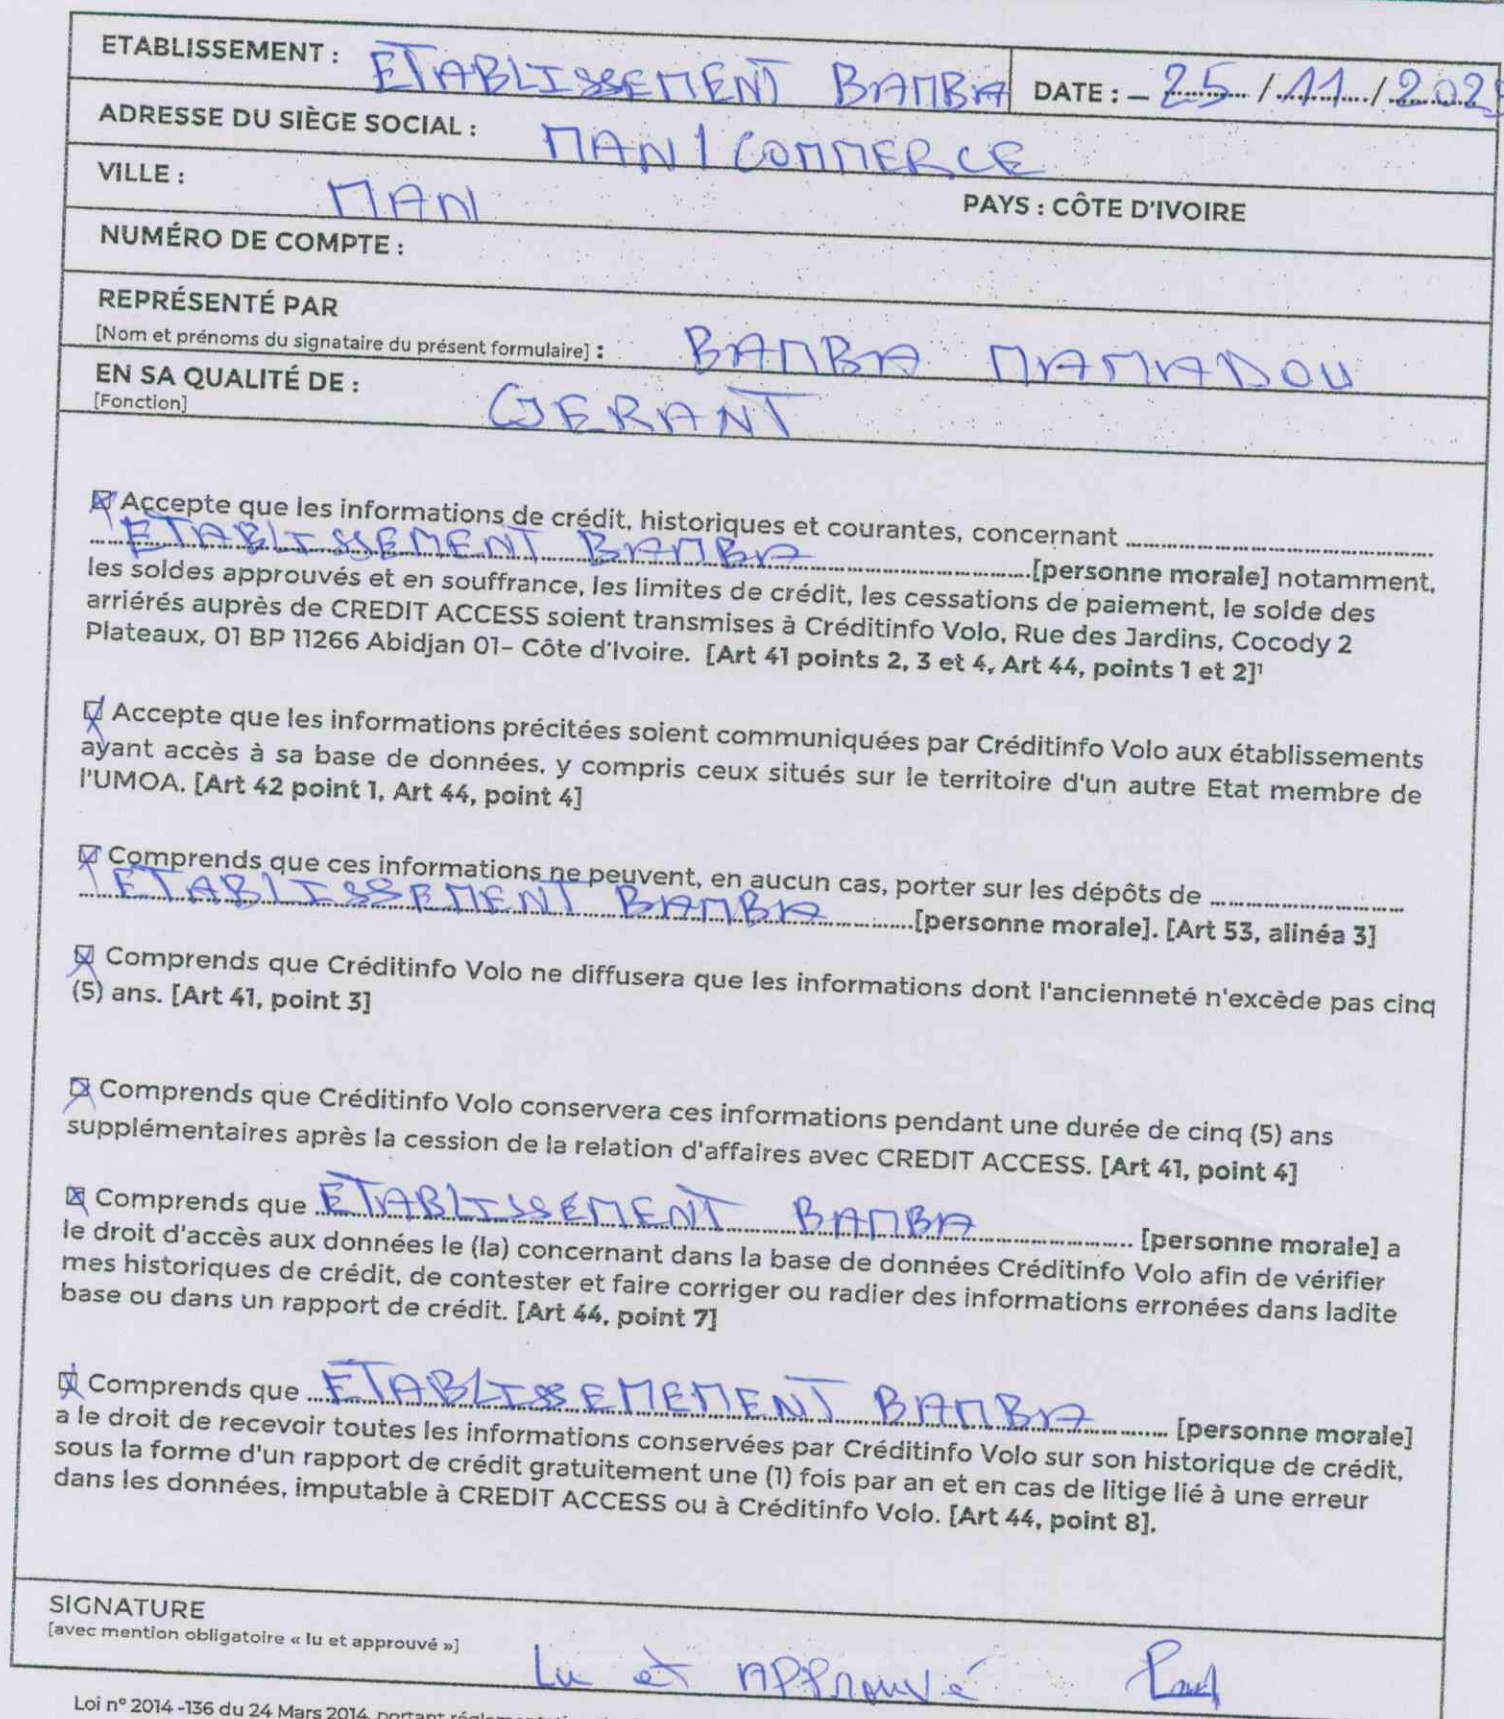 ETABLISSEMENT : ETABLISSEMENT BAMBA DATE : – 25 / 11 / 202
ADRESSE DU SIÈGE SOCIAL : MAN / COMMERCE
VILLE : MAN PAYS : CÔTE D'IVOIRE
NUMÉRO DE COMPTE :
REPRÉSENTÉ PAR
[Nom et prénoms du signataire du présent formulaire] : BAMBA MAMADOU
EN SA QUALITÉ DE : GERANT
[Fonction]
Accepte que les informations de crédit, historiques et courantes, concernant
ETABLISSEMENT BAMBA [personne morale] notamment,
les soldes approuvés et en souffrance, les limites de crédit, les cessations de paiement, le solde des
arriérés auprès de CREDIT ACCESS soient transmises à Créditinfo Volo, Rue des Jardins, Cocody 2
Plateaux, 01 BP 11266 Abidjan 01– Côte d'Ivoire. [Art 41 points 2, 3 et 4, Art 44, points 1 et 2]¹
Accepte que les informations précitées soient communiquées par Créditinfo Volo aux établissements
ayant accès à sa base de données, y compris ceux situés sur le territoire d'un autre Etat membre de
l'UMOA. [Art 42 point 1, Art 44, point 4]
Comprends que ces informations ne peuvent, en aucun cas, porter sur les dépôts de
ETABLISSEMENT BAMBA [personne morale]. [Art 53, alinéa 3]
Comprends que Créditinfo Volo ne diffusera que les informations dont l'ancienneté n'excède pas cinq
(5) ans. [Art 41, point 3]
Comprends que Créditinfo Volo conservera ces informations pendant une durée de cinq (5) ans
supplémentaires après la cession de la relation d'affaires avec CREDIT ACCESS. [Art 41, point 4]
Comprends que ETABLISSEMENT BAMBA [personne morale] a
le droit d'accès aux données le (la) concernant dans la base de données Créditinfo Volo afin de vérifier
mes historiques de crédit, de contester et faire corriger ou radier des informations erronées dans ladite
base ou dans un rapport de crédit. [Art 44, point 7]
Comprends que ETABLISSEMEMENT BAMBA [personne morale]
a le droit de recevoir toutes les informations conservées par Créditinfo Volo sur son historique de crédit,
sous la forme d'un rapport de crédit gratuitement une (1) fois par an et en cas de litige lié à une erreur
dans les données, imputable à CREDIT ACCESS ou à Créditinfo Volo. [Art 44, point 8].
SIGNATURE
[avec mention obligatoire « lu et approuvé »] Lu et APProuvé
Loi n° 2014 -136 du 24 Mars 2014, portant